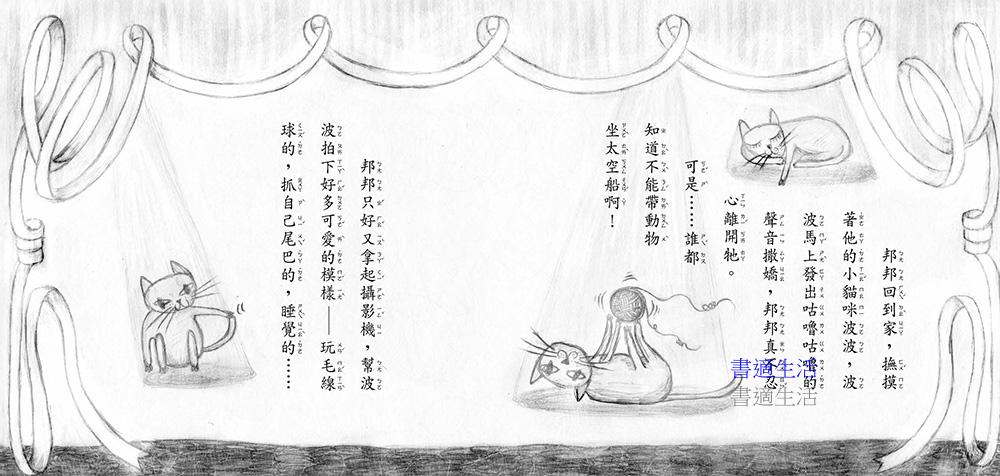 邦邦回到家，撫摸
著他的小貓咪波波，波
波馬上發出咕嚕咕嚕的
聲音撒嬌，邦邦真不忍
心離開牠。
可是……誰都
知道不能帶動物
坐太空船啊！
邦邦只好又拿起攝影機，幫波
波拍下好多可愛的模樣——玩毛線
球的，抓自己尾巴的，睡覺的……
書適生活
書適生活